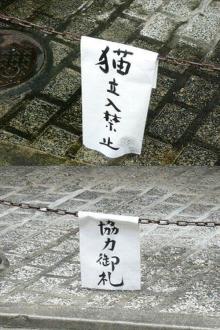 猫
立入禁止
協力御札